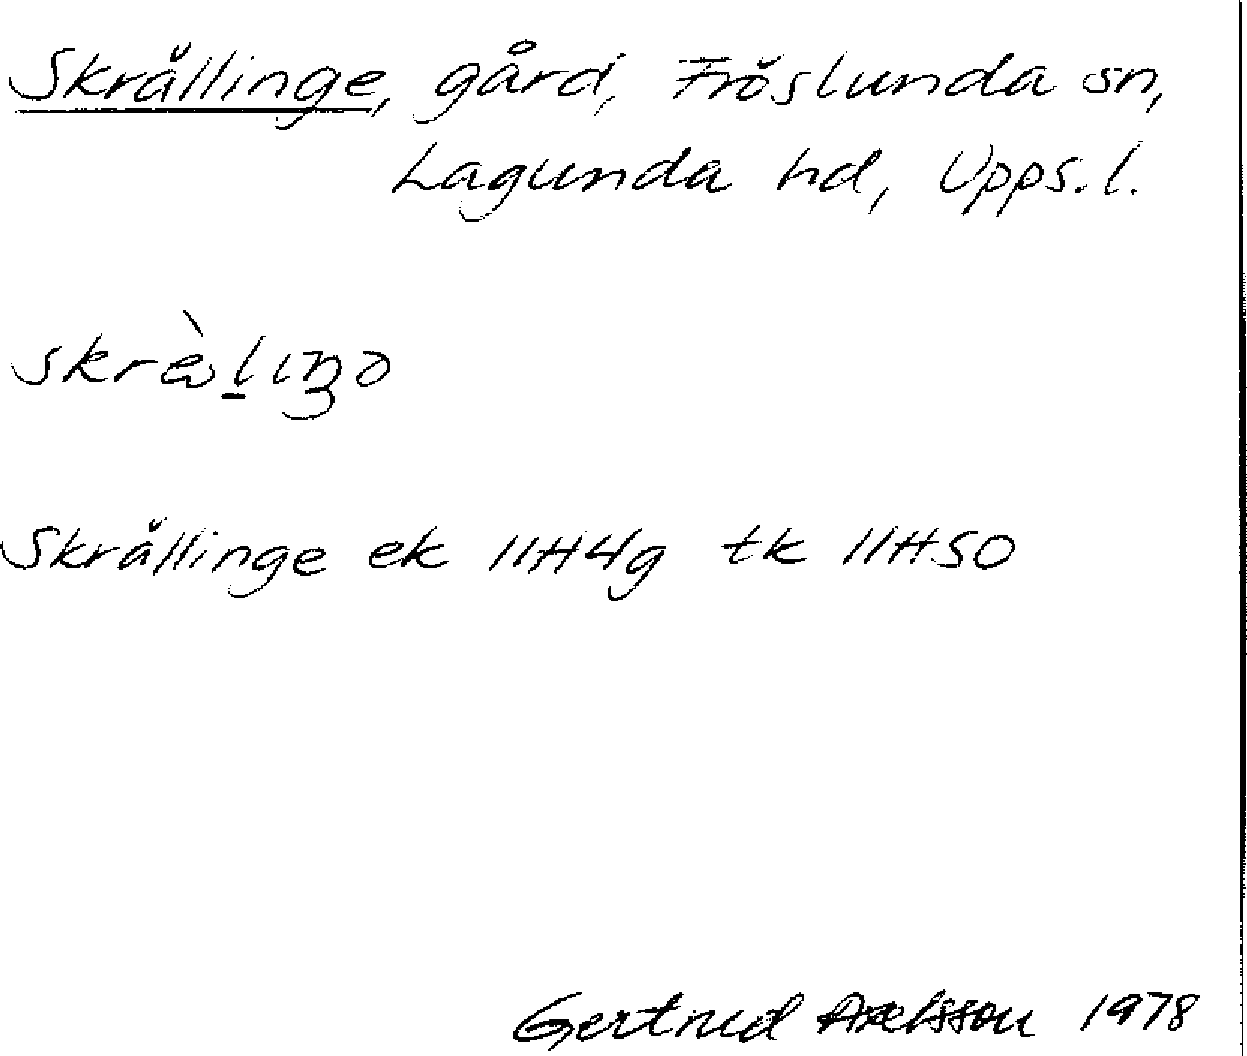 Skrällinge, gård, Fröslunda sn,
Lagunda hd, Upps.l.
Skrällinge ek 11H4g tk 11H50
Gertrud Axelsson 1978